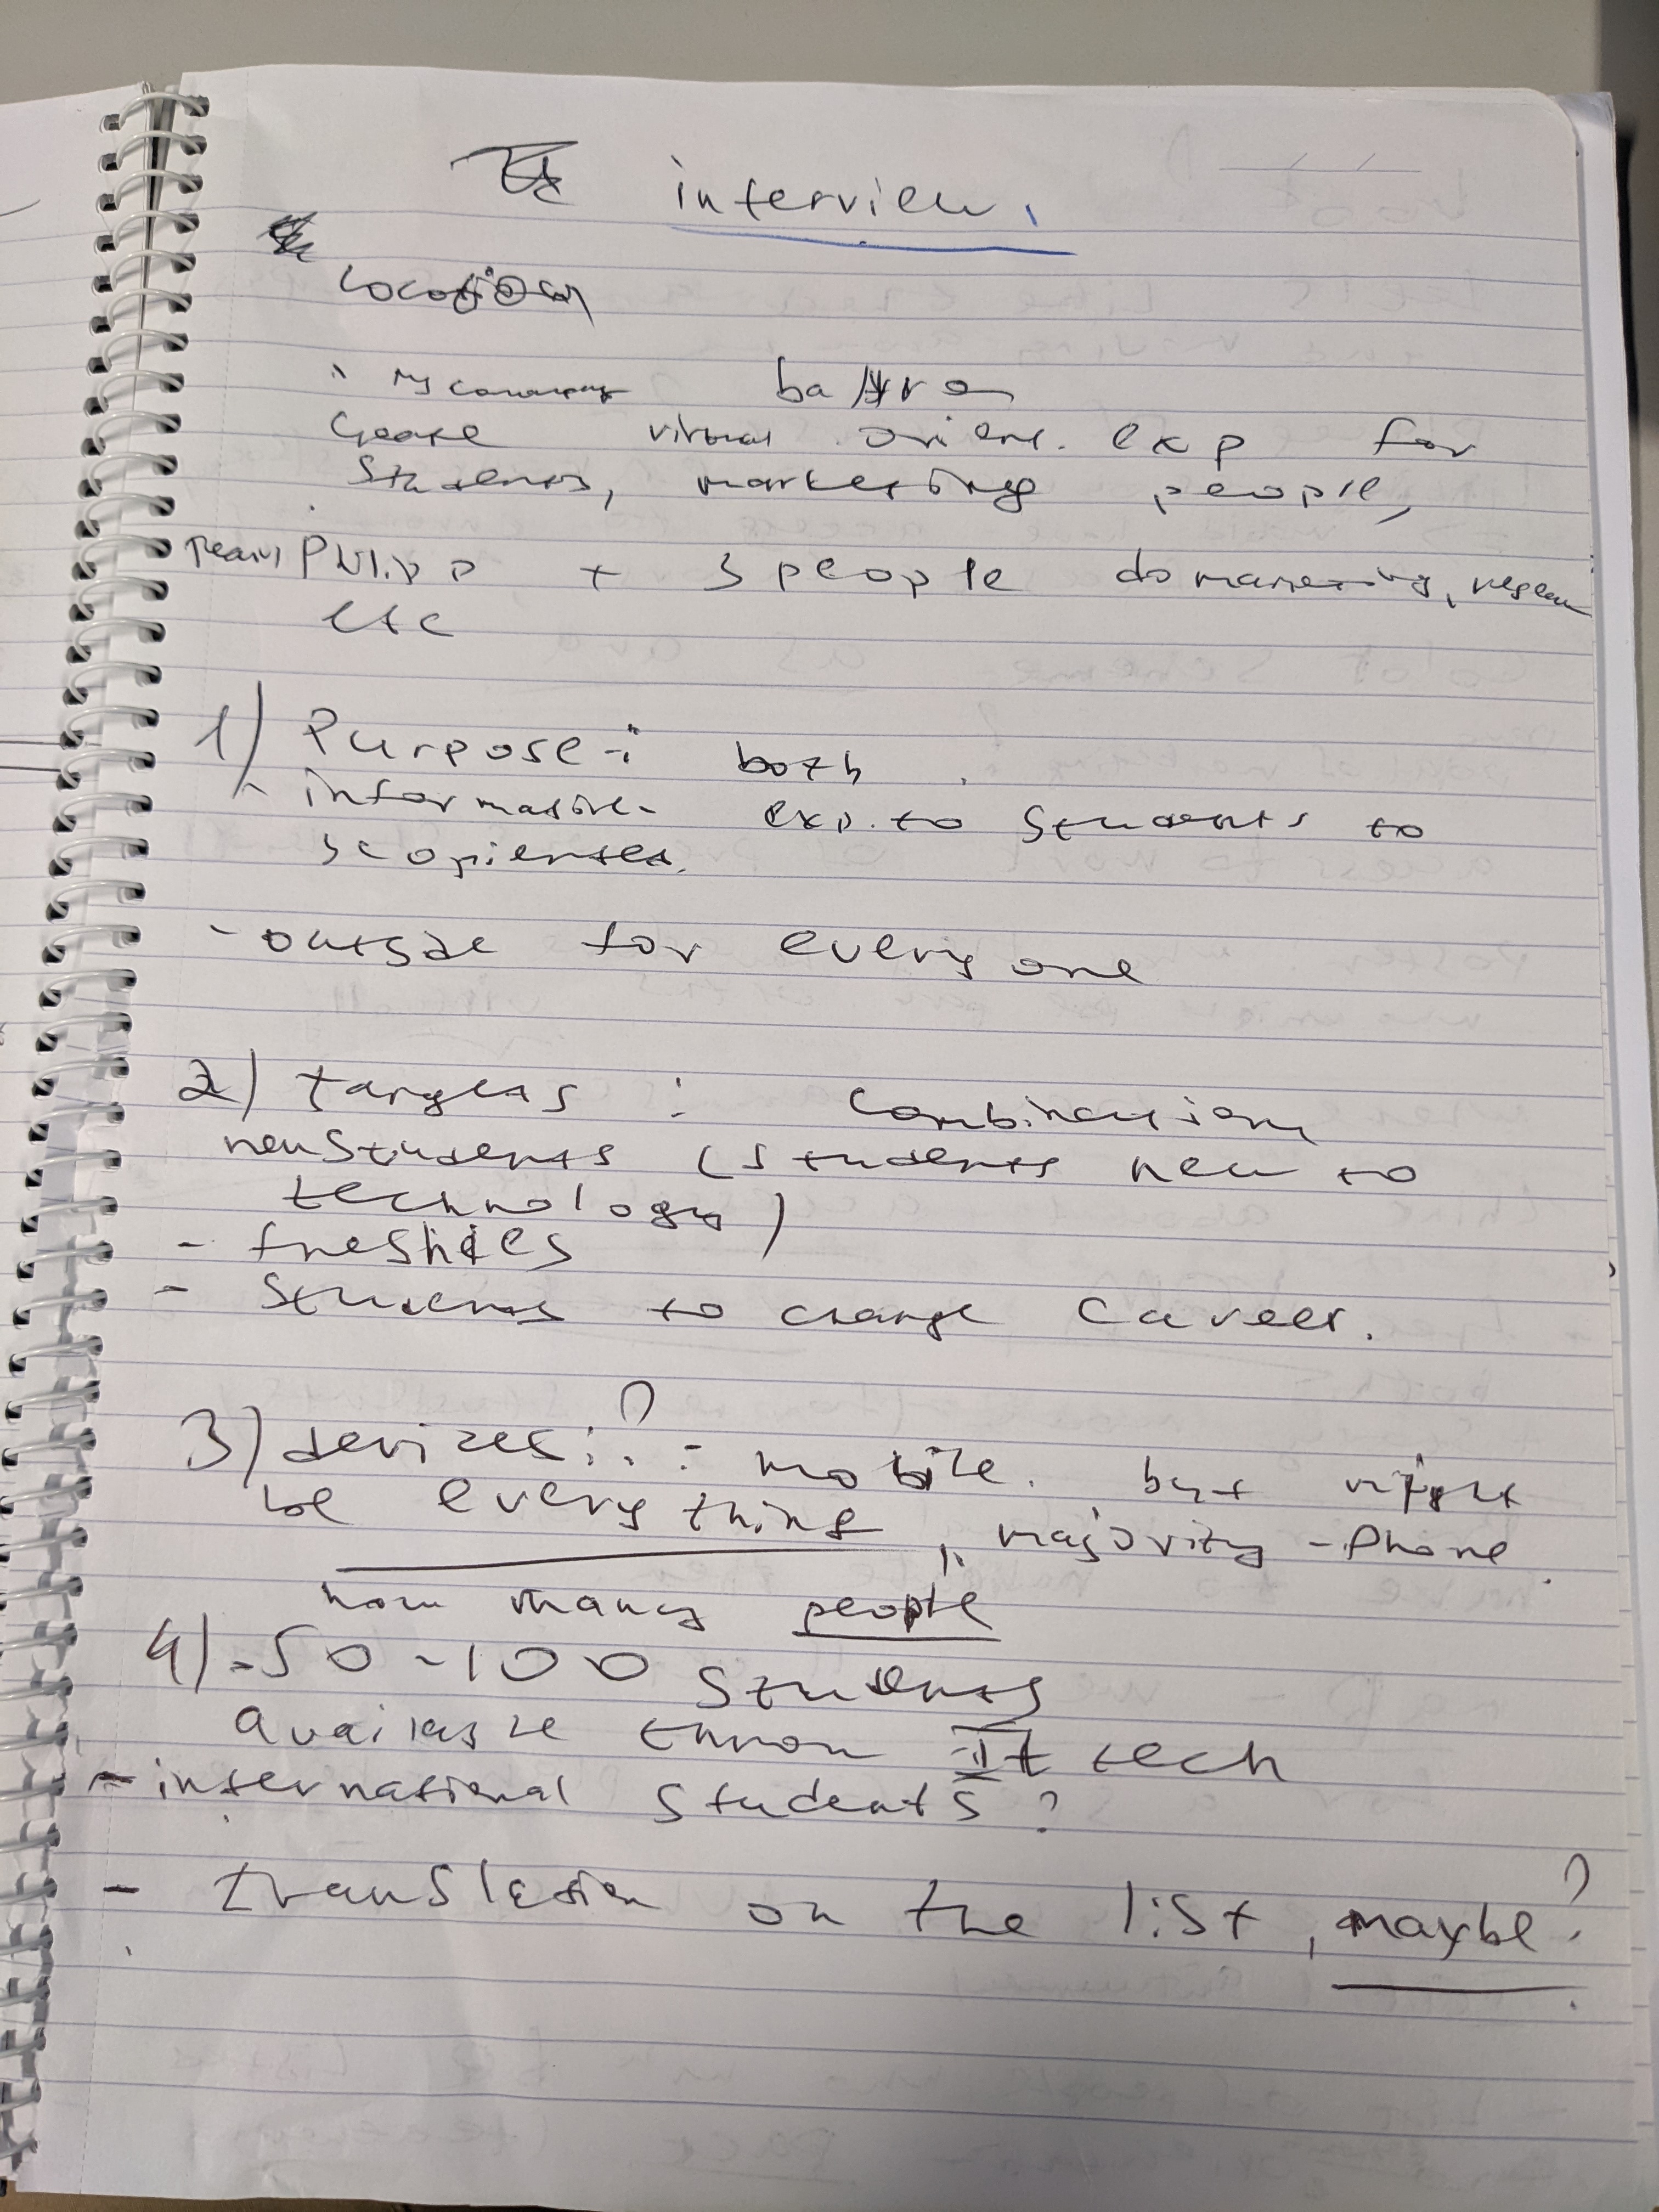 interview
Location
virtual orient. exp for
students, marketing people,
Team + 3 people
etc
1) Purpose: both
- informative- exp. to students to
- outside for everyone
2) targets : combination
new students (students new to
technology)
- freshies
- students to change career.
3) devizes: ? - mobile. but might
be everything, majority - Phone.
how many people
4) - 50-100 students
available throu It tech
- international students?
- translation on the list, maybe?